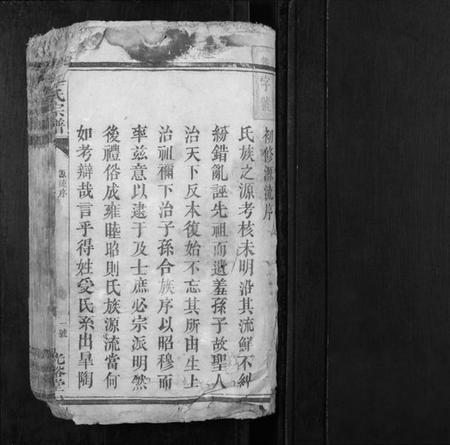 字號
初修源流序
氏族之源考核未明沿其流鮮不糾
紛錯亂誣先祖而遺羞孫子故聖人
治天下反本復始不忘其所由生上
治祖禰下治子孫合族序以昭穆而
率兹意以逮于及士庶必宗派明然
後禮俗成雍睦昭則氏族源流當何
如考辯哉言乎得姓受氏系出皐陶
氏宗譜
源流序
一號
光裕堂